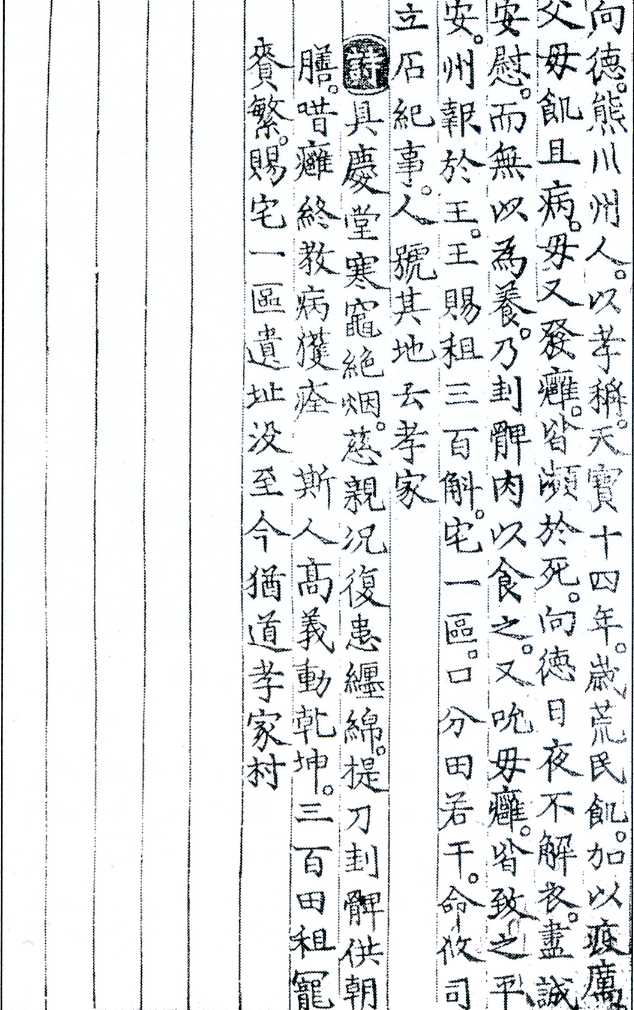 向德。熊川州人。以孝稱。天寶十四年。歲荒民飢。加以疫厲
父母飢且病。母又發癰。皆濒於死。向德日夜不解衣。盡誠
安慰。而無以為養。乃刲髀肉以食之。又吮母癰。皆致之平
安。州報於王。王賜租三百斛。宅一區。口分田若干。命攸司
立石紀事。人號其地云孝家
詩 具慶堂寒竈絶烟。慈親况復患纒綿。提刀刲髀供朝
膳。唶癰終教病獲痊 斯人高義動乾坤。三百田租寵
賚繁。賜宅一區遺址没至今猶道孝家村